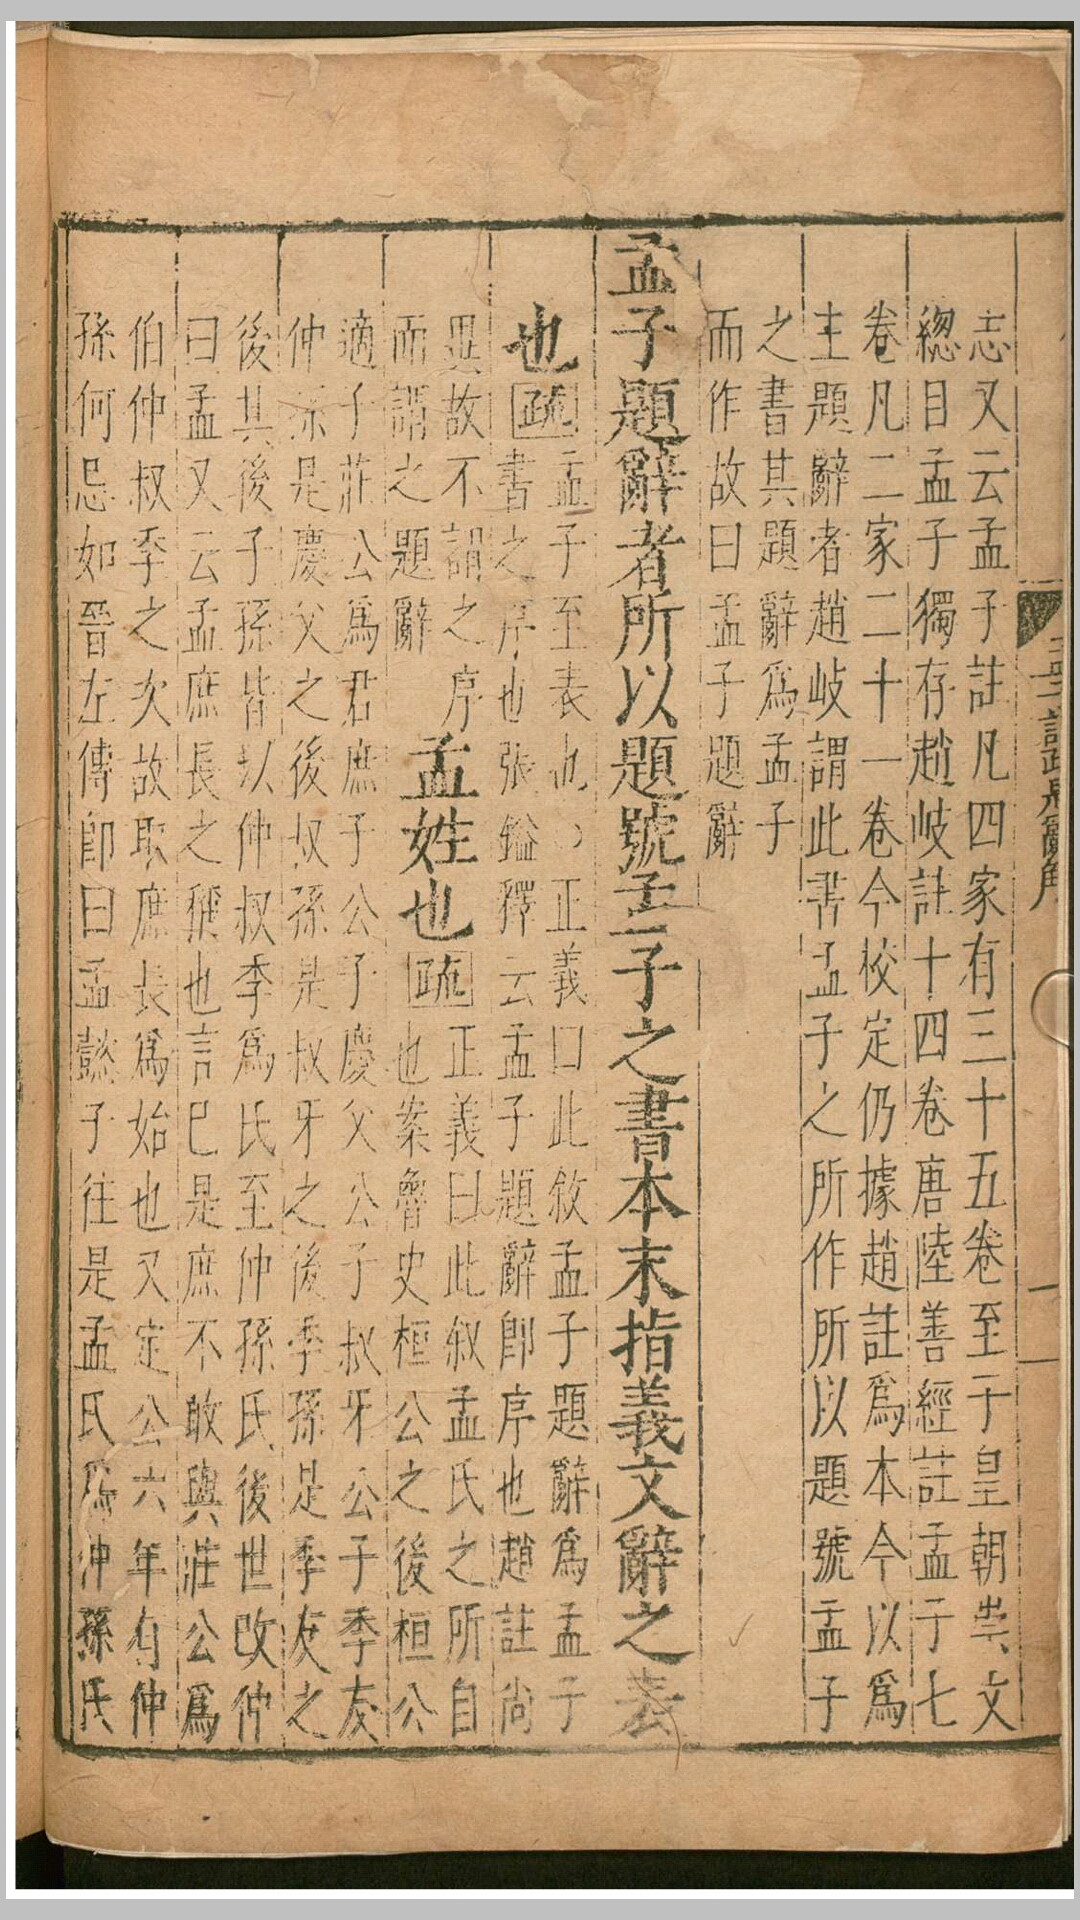 志又云孟子註凡四家有三十五卷至于皇朝崇文
總目孟子獨存趙岐註十四卷唐陸善經註孟子七
卷凡二家二十一卷今校定仍據趙註爲本今以爲
主題辭者趙岐謂此書孟子之所作所以題號孟子
之書其題辭爲孟子
而作故曰孟子題辭
孟子題辭者所以題號孟子之書本末指義文辭之表
也疏
孟子至表也○正義曰此敘孟子題辭爲孟子
書之序也張鎰釋云孟子題辭即序也趙註尚
異故不謂之序
而謂之題辭
孟姓也疏
正義曰此叙孟氏之所自
也案魯史桓公之後桓公
適子莊公爲君庶子公子慶父公子叔牙公子季友
仲孫是慶父之後叔孫是叔牙之後季孫是季友之
後其後子孫皆以仲叔季爲氏至仲孫氏後世改仲
曰孟又云孟庶長之稱也言己是庶不敢與莊公爲
伯仲叔季之次故取庶長爲始也又定公六年有仲
孫何忌如晉左傳即曰孟懿子往是孟氏爲仲孫氏